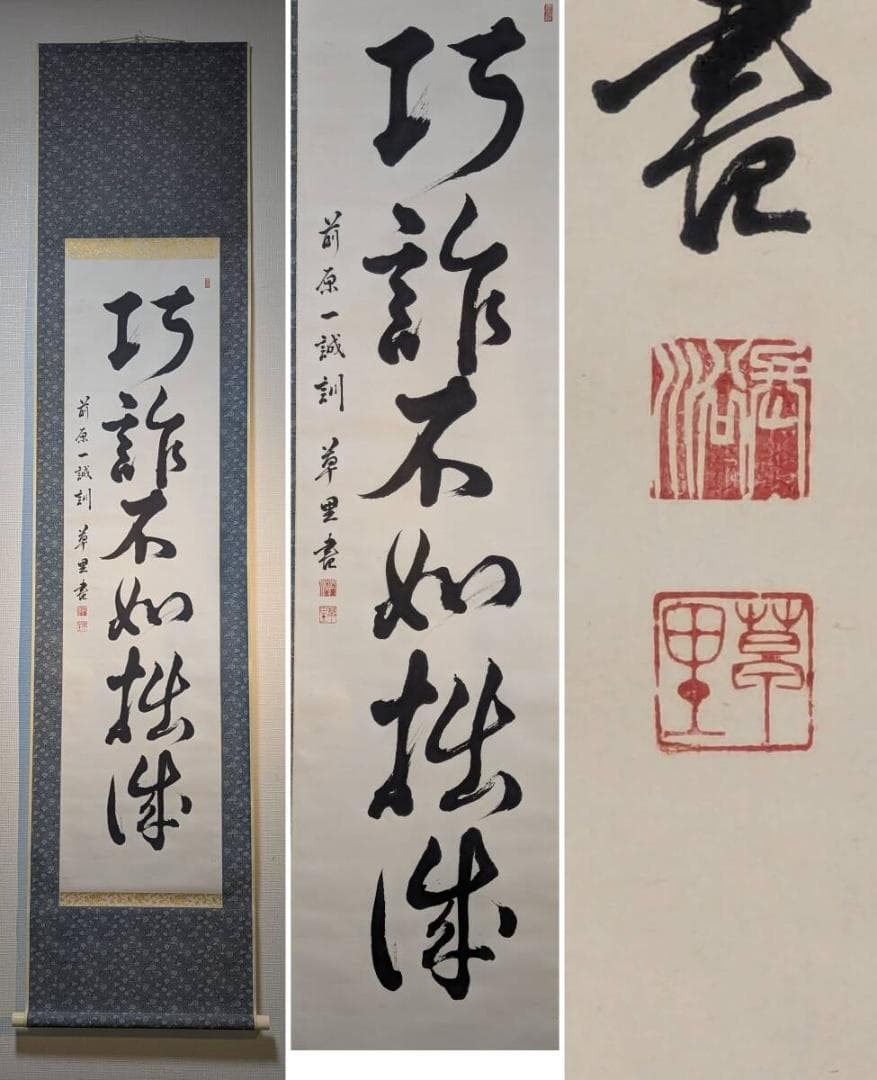 巧詐不如拙誠
前原一誠訓 草里書
巧詐不如拙誠
前原一誠訓 草里書
書
草里